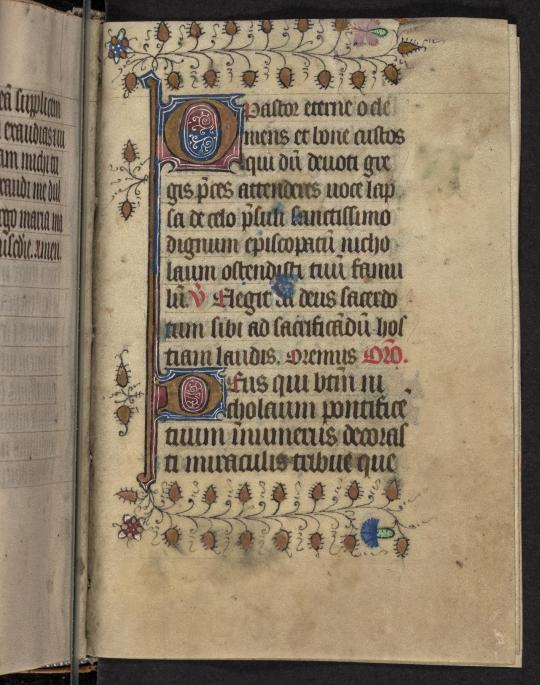 eā supplicem
exaudias in
am michi tu
raudi me dul
ergo maria ma
iscdie. amen.
O pastor eterne o cle
mens et bone custos
qui dū deuoti gre
gis p̄ces attenderes uoce lap
sa de celo p̄suli sanctissimo
dignum episcopatū nicho
laum ostendisti tuū famu
lū. V̄ Elegit eū deus sacerdo
tem sibi ad sacrificādū hos
tiam laudis. Oremus Orō.
Deus qui btm̄ ni
cholaum pontificē
tuum īnumeris decoras
ti miraculis tribue que